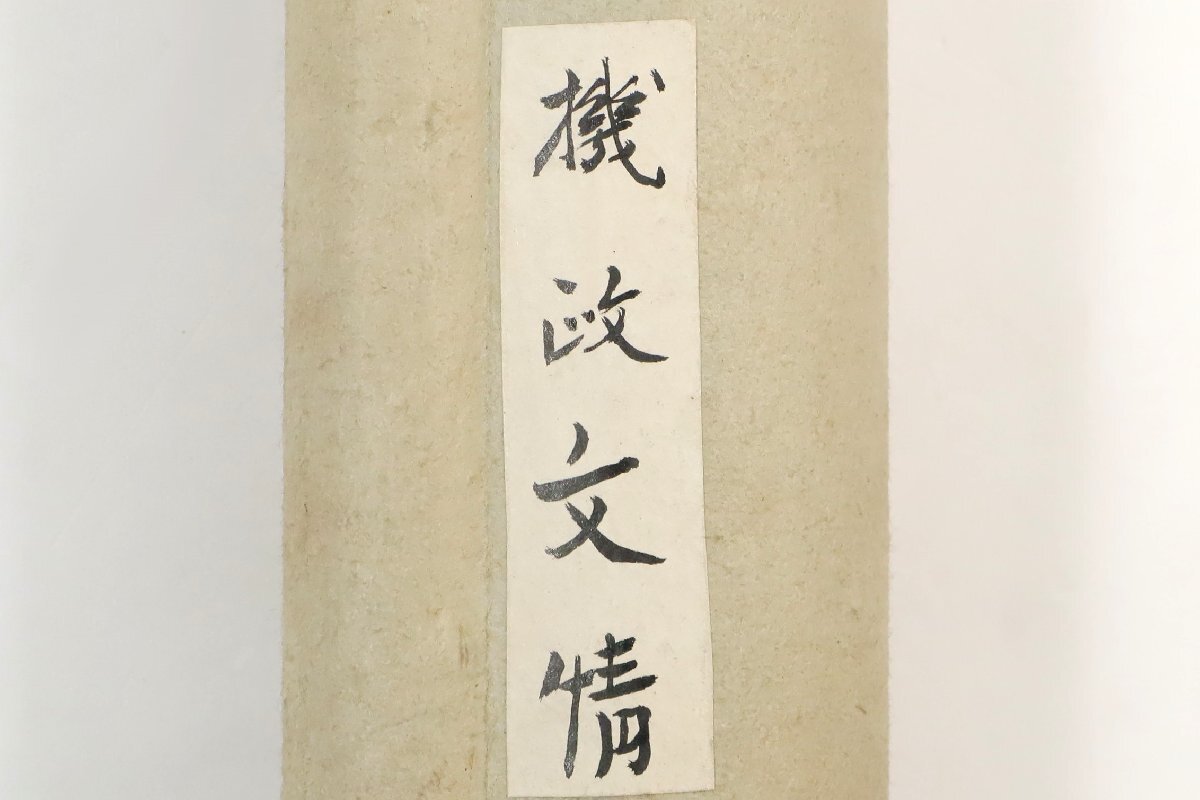 機政文情